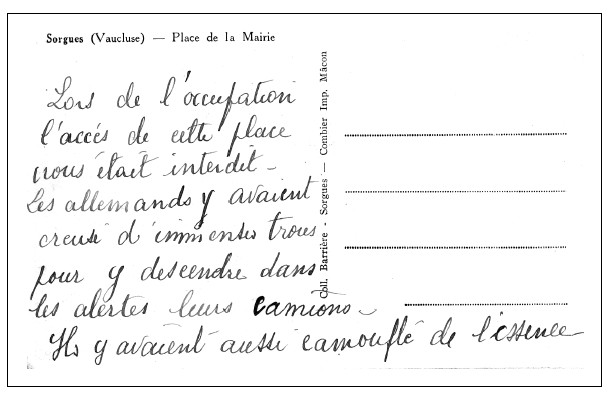 Sorgues (Vaucluse) — Place de la Mairie
Lors de l'occupation
l'accés de cette place
nous était interdit -
Les allemands y avaient
creusé d'immenses trous
pour y descendre dans
les alertes leurs camions -
Ils y avaient aussi camouflé de l'essence
Coll. Barrière - Sorgues — Combier Imp. Mâcon